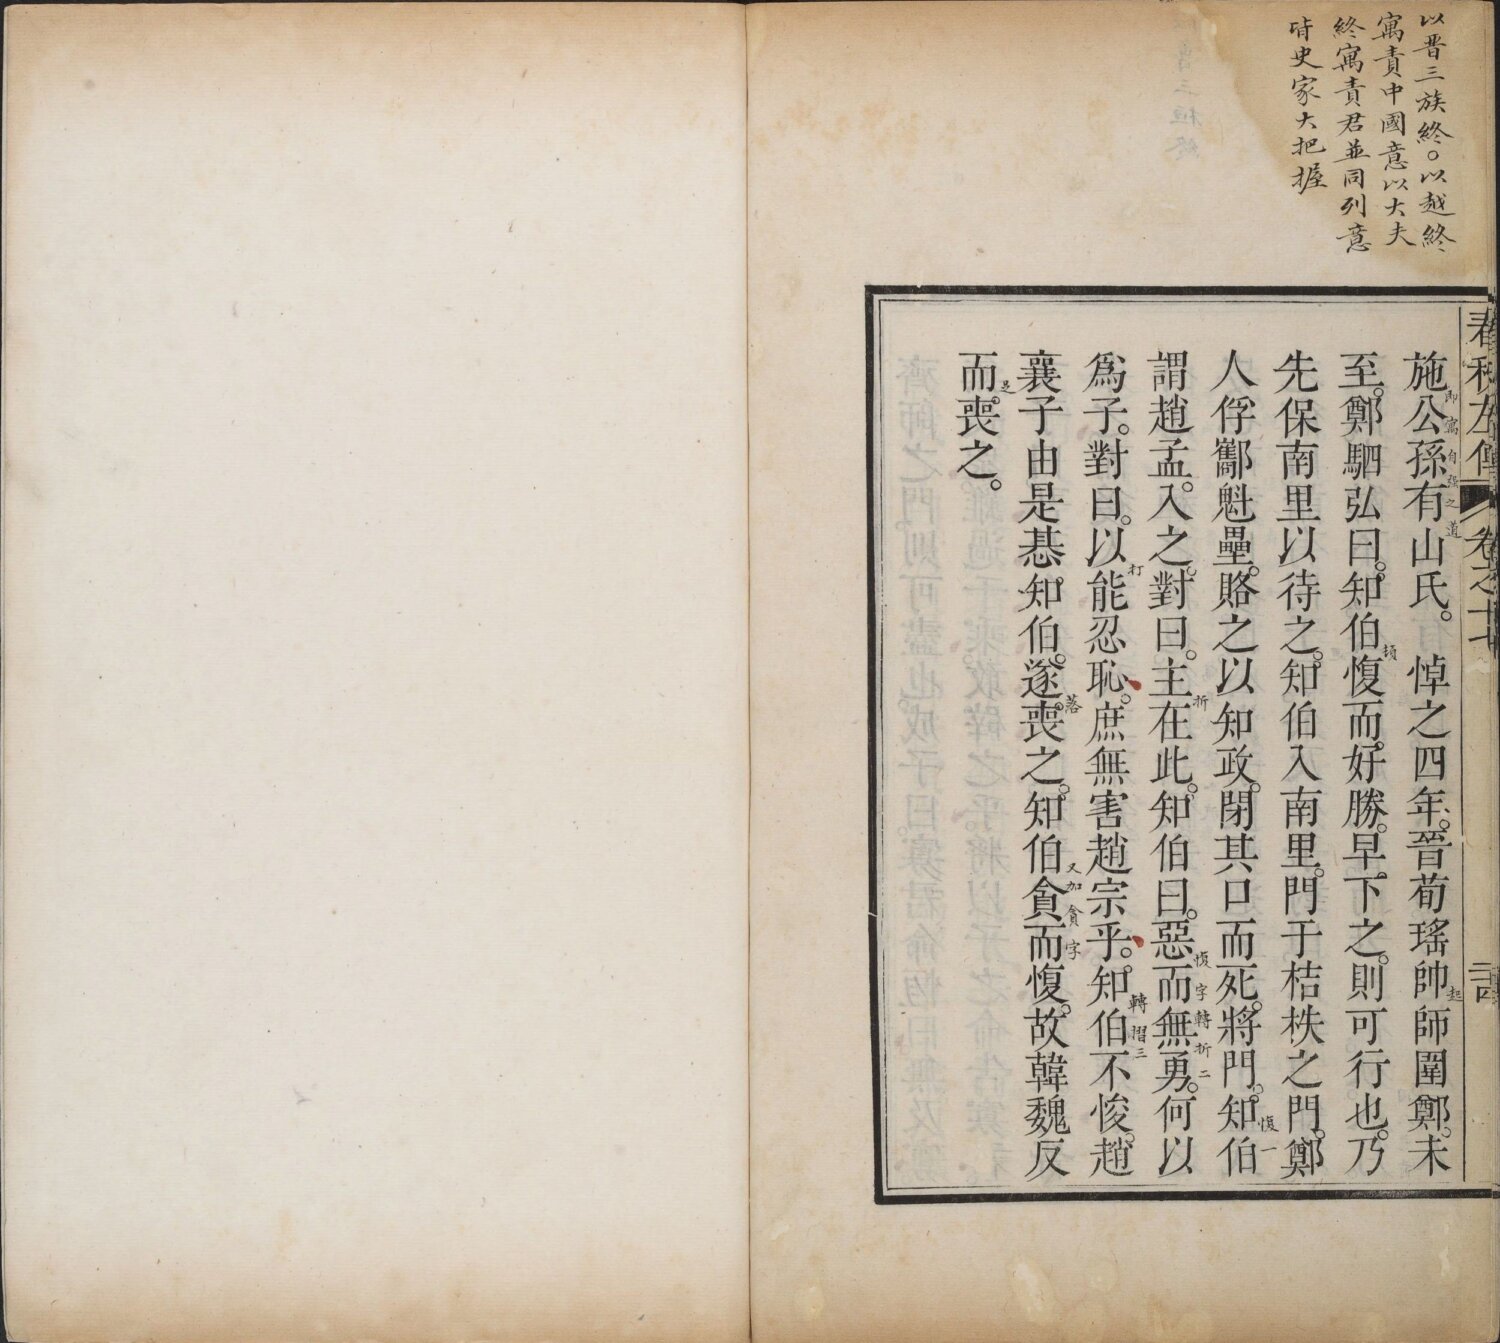 以晉三族終。以越終
寓責中國意以大夫
終寓責君並同列意
時史家大把握
春秋左傳
卷之十七
二十四
施公孫有山氏。 悼之四年。晉荀瑤帥師圍鄭。未
即寓自强之道
起
至。鄭駟弘曰。知伯愎而好勝。早下之。則可行也。乃
頓
先保南里以待之。知伯入南里。門于桔柣之門。鄭
人俘酅魁壘。賂之以知政。閉其口而死。將門。知伯
愎一
謂趙孟。入之。對曰。主在此。知伯曰。惡而無勇。何以
折
愎字轉折二
爲子。對曰。以能忍恥。庶無害趙宗乎。知伯不悛。趙
打
轉摺三
襄子由是惎知伯。遂喪之。知伯貪而愎。故韓魏反
落
又加貪字
而喪之。
足